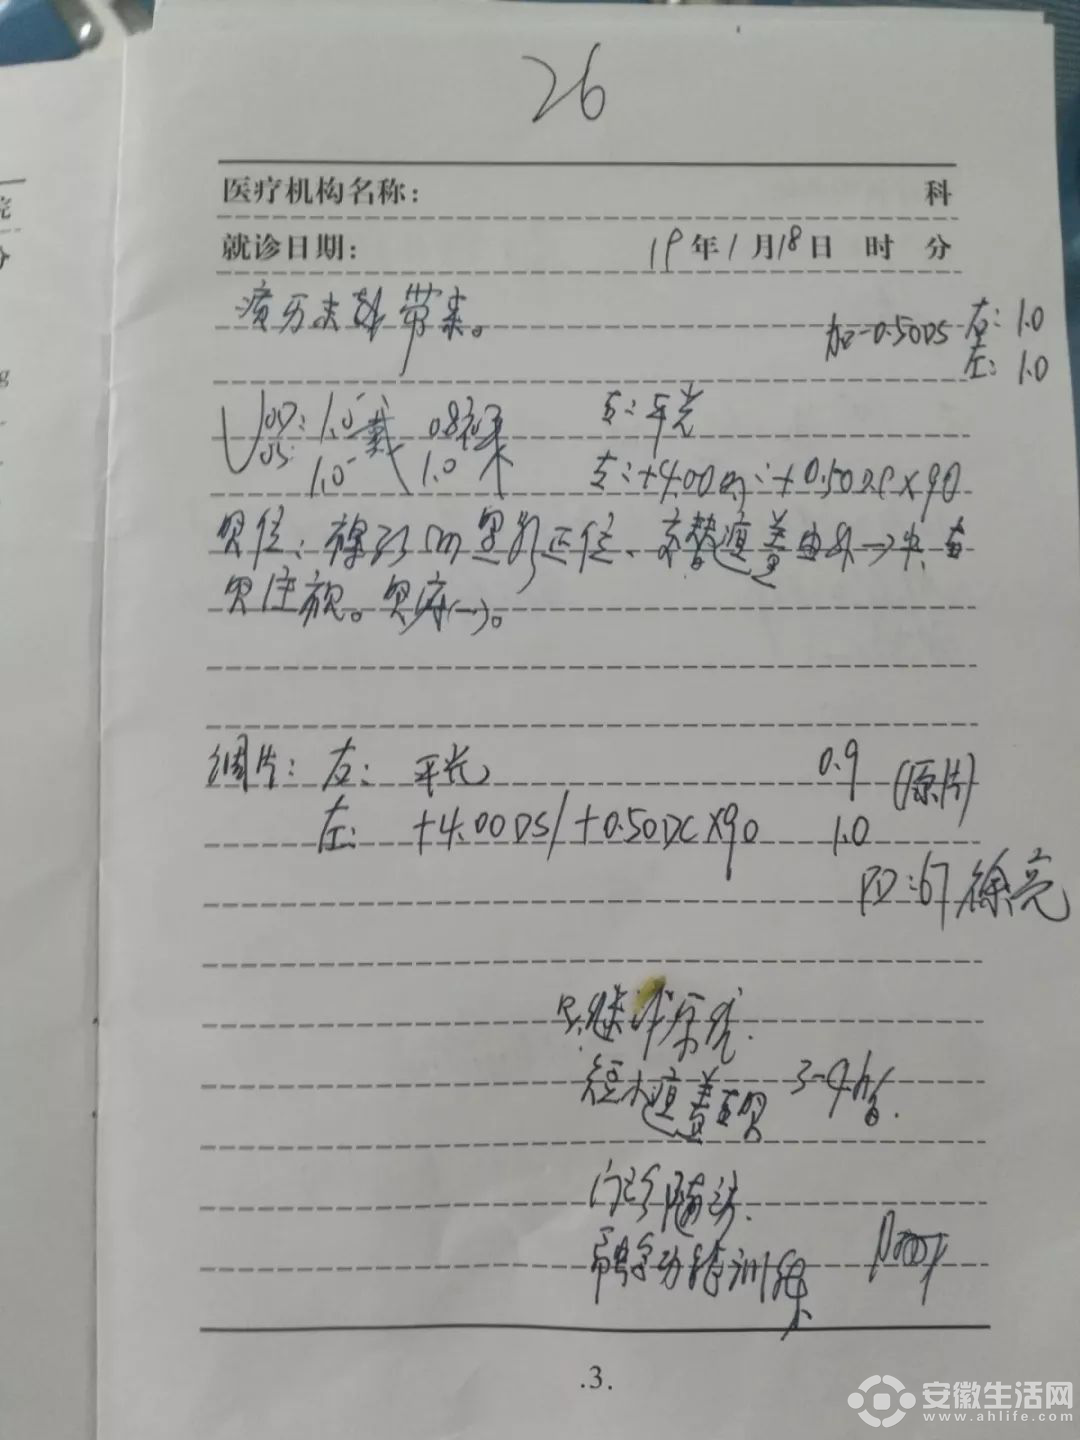 26
医疗机构名称： 科
就诊日期： 19年1月18日 时 分
病历未带来。
加-0.50DS 右：1.0
左：1.0
VOD：1.0 戴 0.8裸 右：平光
OS：1.0 1.0 左：+4.00DS：+0.50DC×90
眼位：裸 正位、交替遮盖 由外→中
注视。眼震(-)。
调片：右：平光 0.9 (原片)
左：+4.00DS/+0.50DC×90 1.0
PD：67 徐亮
R：继续原镜.
短小遮盖右眼 3-4h/日.
门诊随访.
视功能训练
.3.
安徽生活网
www.ahlife.com